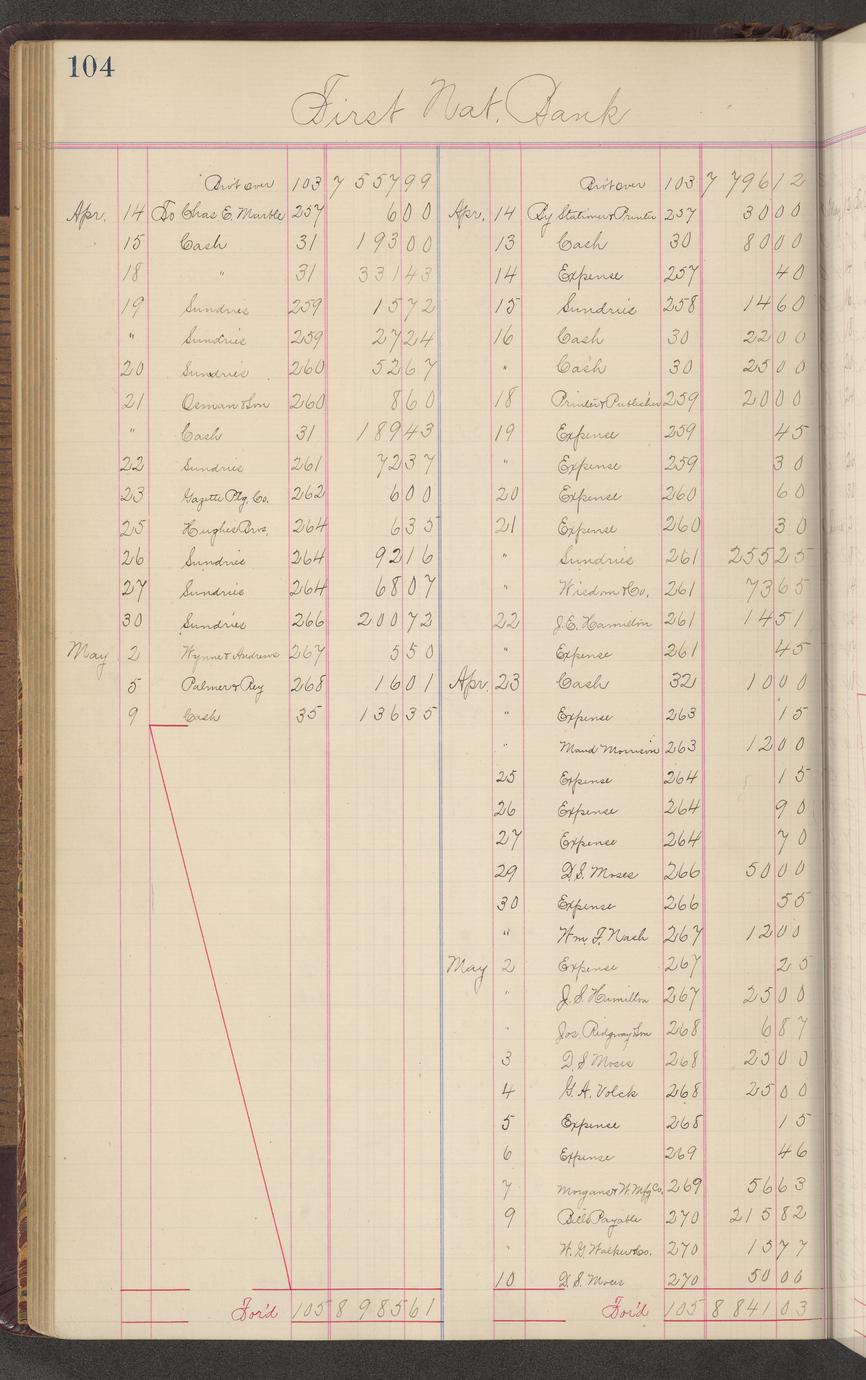 104
First Nat. Bank
Bro't over 103 7 557 99
Apr. 14 To Chas E. Marble 257 6 00
15 Cash 31 193 00
18 " 31 331 43
19 Sundries 259 15 72
" Sundries 259 27 24
20 Sundries 260 52 67
21 Osman & Son 260 8 60
" Cash 31 189 43
22 Sundries 261 72 37
23 Gazette Ptg. Co. 262 6 00
25 Hughes Bros. 264 6 35
26 Sundries 264 92 16
27 Sundries 264 68 07
30 Sundries 266 200 72
May 2 Wynne & Andrews 267 5 50
5 Palmer & Rey 268 16 01
9 Cash 35 136 35
For'd 105 8 985 61
Bro't over 103 7 796 12
Apr. 14 By Stationer & Printer 257 30 00
13 Cash 30 80 00
14 Expense 257 40
15 Sundries 258 14 60
16 Cash 30 22 00
" Cash 30 25 00
18 Printer & Publisher 259 20 00
19 Expense 259 45
" Expense 259 30
20 Expense 260 60
21 Expense 260 30
" Sundries 261 255 25
" Wisdom & Co. 261 73 65
22 J.E. Hamilton 261 14 51
" Expense 261 45
Apr. 23 Cash 32 10 00
" Expense 263 15
" Maud Morrison 263 12 00
25 Expense 264 15
26 Expense 264 90
27 Expense 264 70
29 D.S. Moses 266 50 00
30 Expense 266 55
" Wm. F. Nash 267 12 00
May 2 Expense 267 25
" J.S. Hamilton 267 25 00
" Jos. Ridgway & Son 268 6 87
3 D.S Moses 268 25 00
4 G.A. Volck 268 25 00
5 Expense 268 15
6 Expense 269 46
7 Morgans & W. Mfg Co. 269 56 63
9 Bills Payable 270 215 82
" W.G. Walker & Co. 270 15 77
10 D.S. Moses 270 50 00
For'd 105 8 841 03